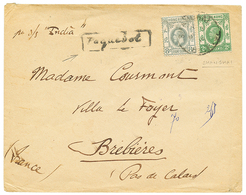 pr s/s "India"
Paquebot
Madame Courmont
Villa Le Foyer
Brebières
(Pas de Calais)
(France)